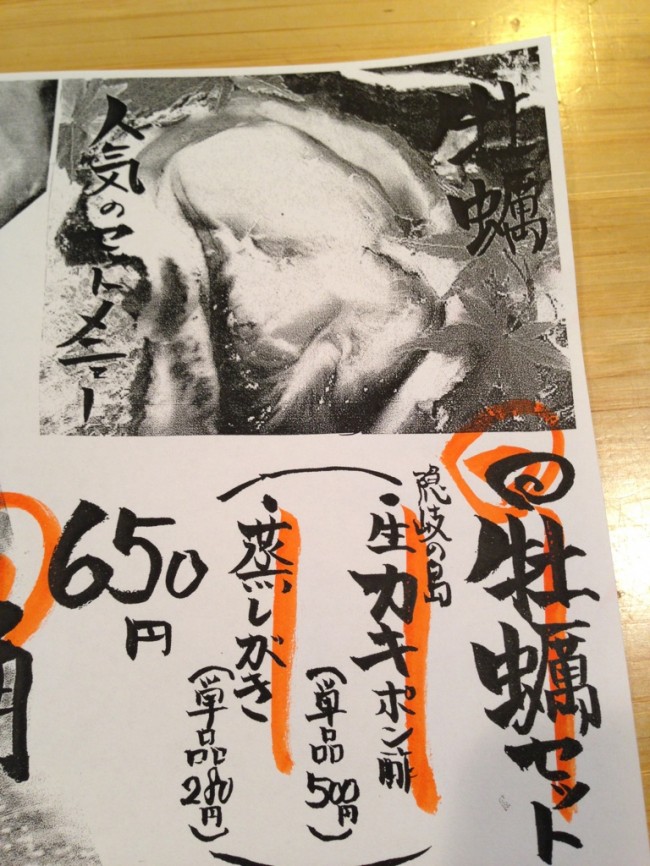 牡蠣
人気のセットメニュー
牡蠣セット
隠岐の島
・生カキポン酢
(単品500円)
・蒸しがき
(単品280円)
650円